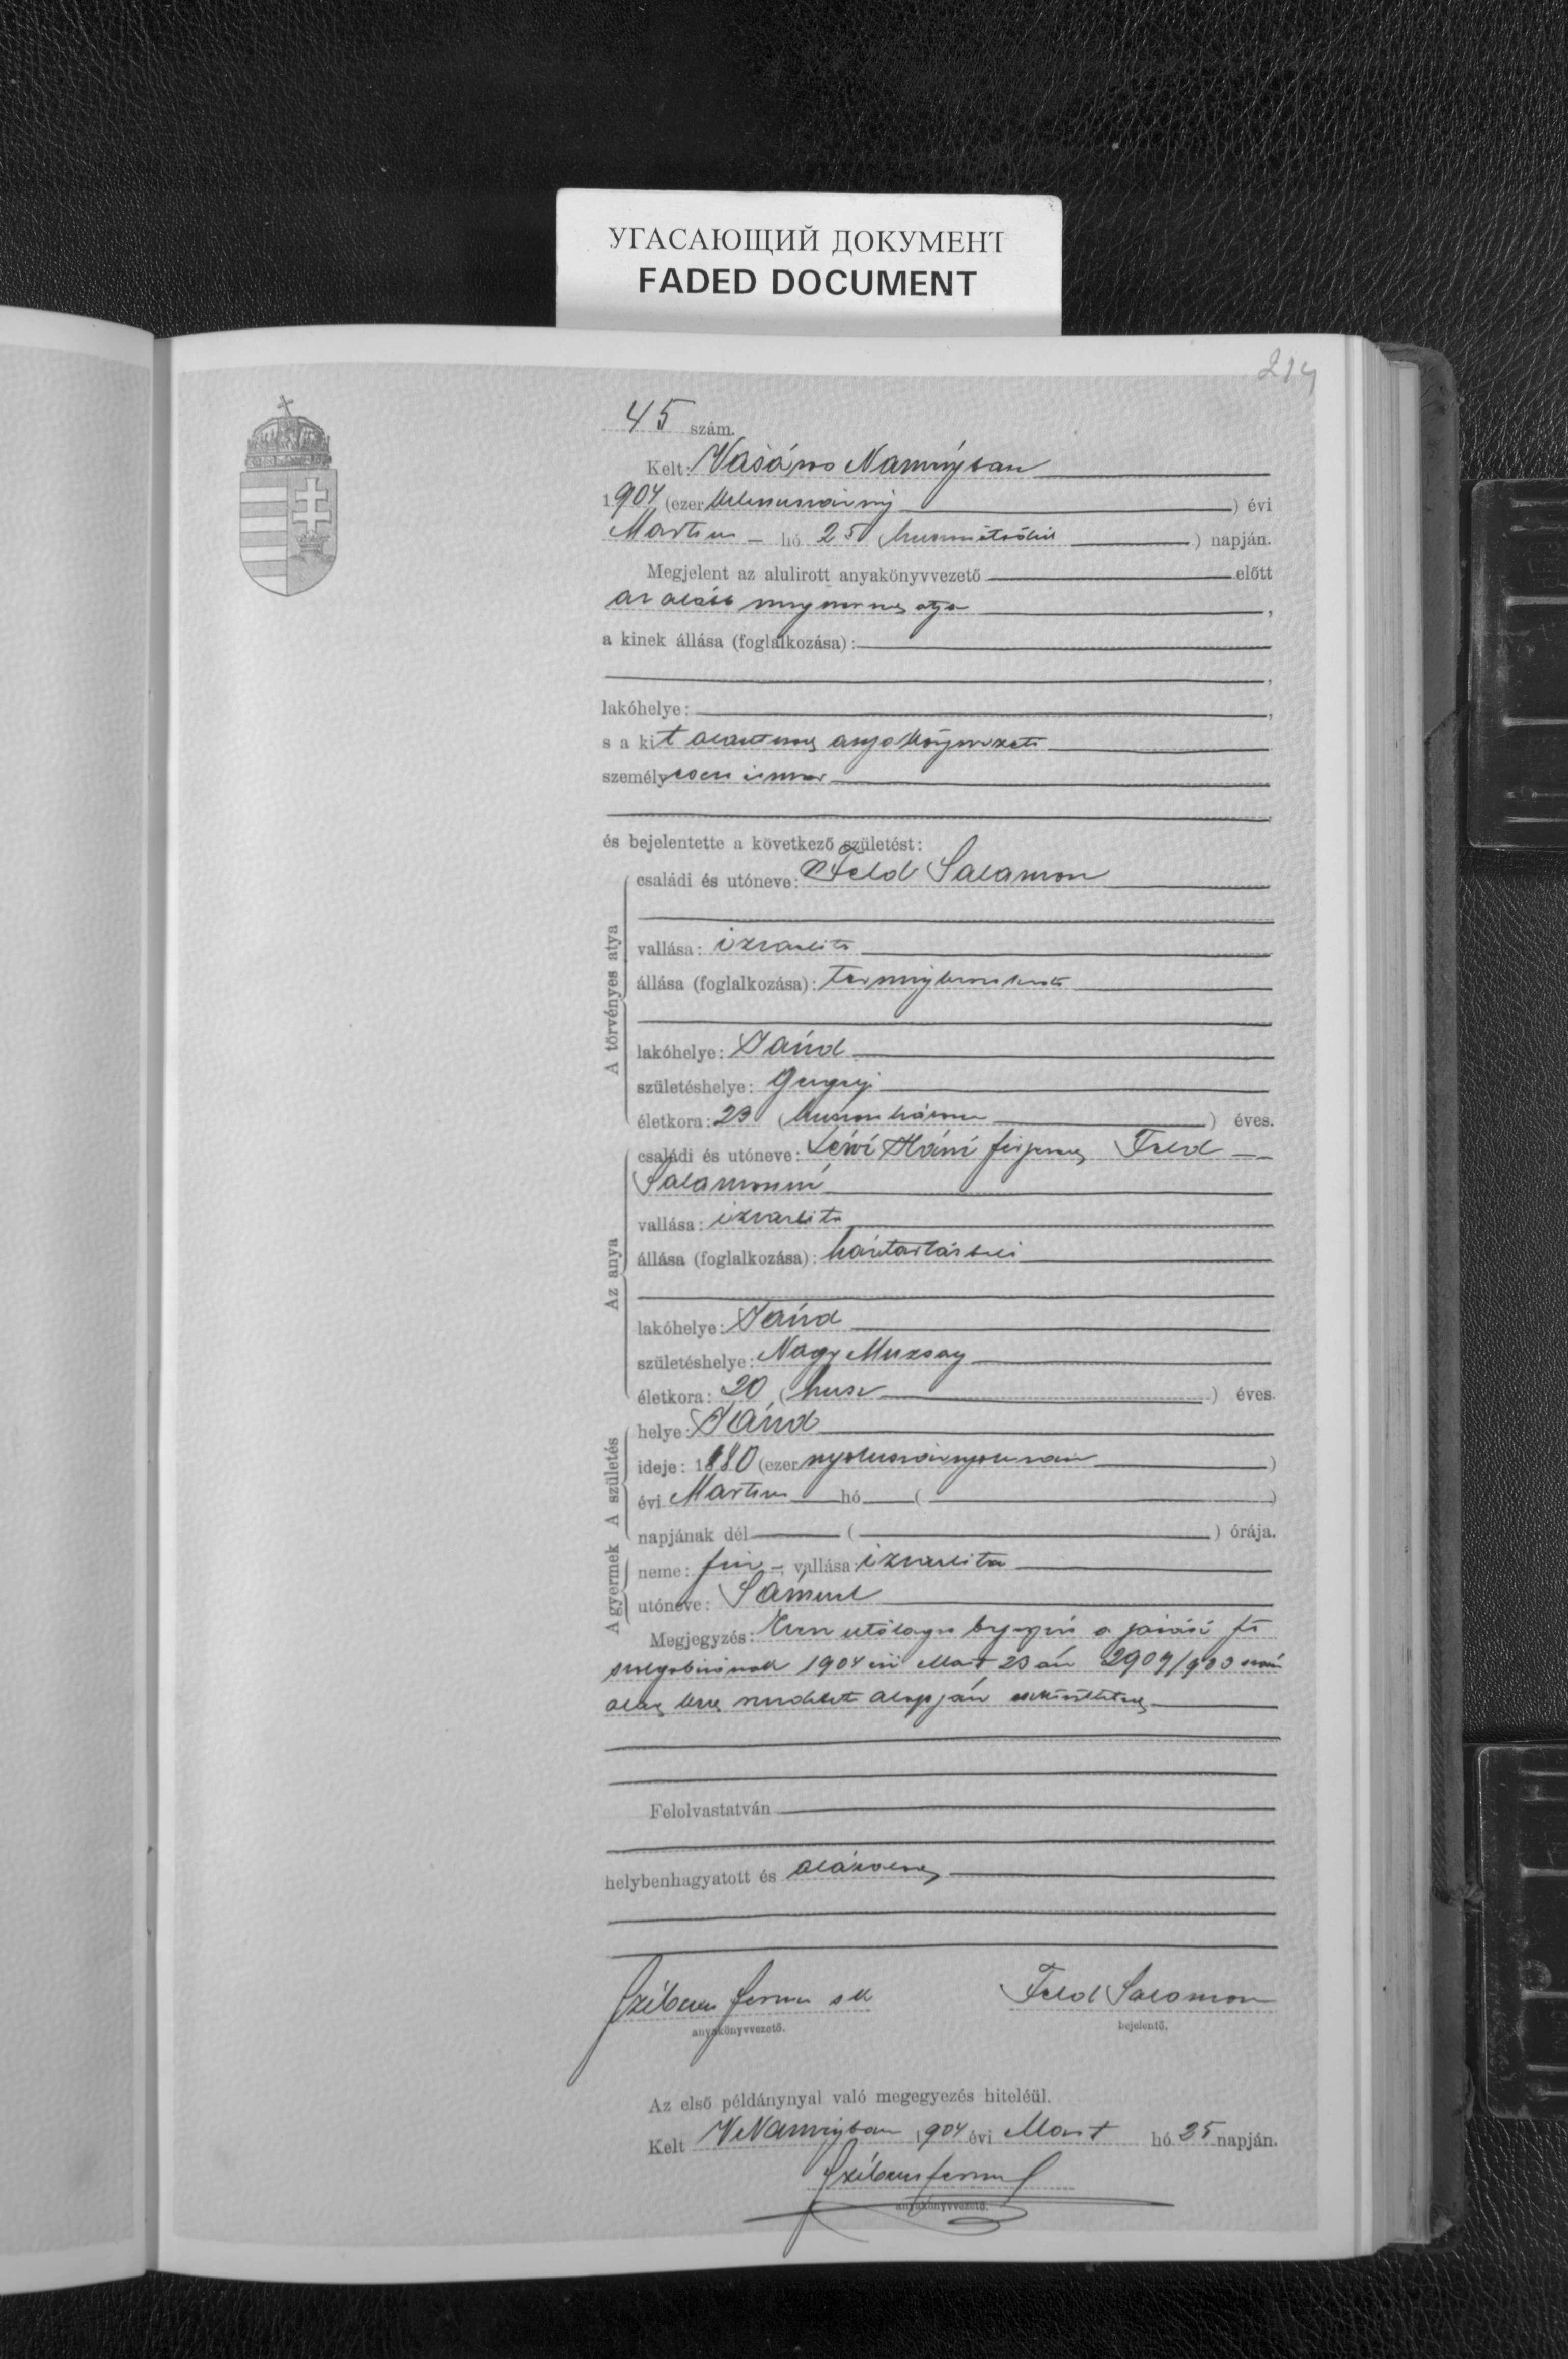 УГАСАЮЩИЙ ДОКУМЕНТ
FADED DOCUMENT
214
45 szám.
Kelt: Vásáros Naményban
1904 (ezer kilenczszáznégy) évi
Martius hó 25 (huszonötödik) napján.
Megjelent az alulirott anyakönyvvezető előtt
az alább megnevezett atya,
a kinek állása (foglalkozása):
lakóhelye:
s a kit alantirott anyakönyvvezető
személyesen ismer
és bejelentette a következő születést:
A törvényes atya
családi és utóneve: Feld Salamon
vallása: izraelita
állása (foglalkozása): terménykereskedő
lakóhelye: Jánd
születéshelye: Gergelyi
életkora: 23 (huszonhárom) éves.
Az anya
családi és utóneve: Lévi Háni férjezett Feld
Salamonné
vallása: izraelita
állása (foglalkozása): háztartásbeli
lakóhelye: Jánd
születéshelye: Nagy Muzsaly
életkora: 20 (husz) éves.
A születés
helye: Jánd
ideje: 1880 (ezer nyolczszáznyolczvan)
évi Martius hó ( )
napjának dél ( ) órája.
A gyermek
neme: fiu; vallása: izraelita
utóneve: Sámuel
Megjegyzés: Ezen utólagos bejegyzés a járási fő
szolgabirónak 1904 évi Mart 23 án 2909/903 szám
alatt kelt rendelete alapján eszközöltetett
Felolvastatván
helybenhagyatott és aláiratott
Ferencz sk Feld Salamon
anyakönyvvezető. bejelentő.
Az első példánynyal való megegyezés hiteléül.
Kelt V Naményban 1904 évi Mart hó 25 napján.
Ferencz
anyakönyvvezető.